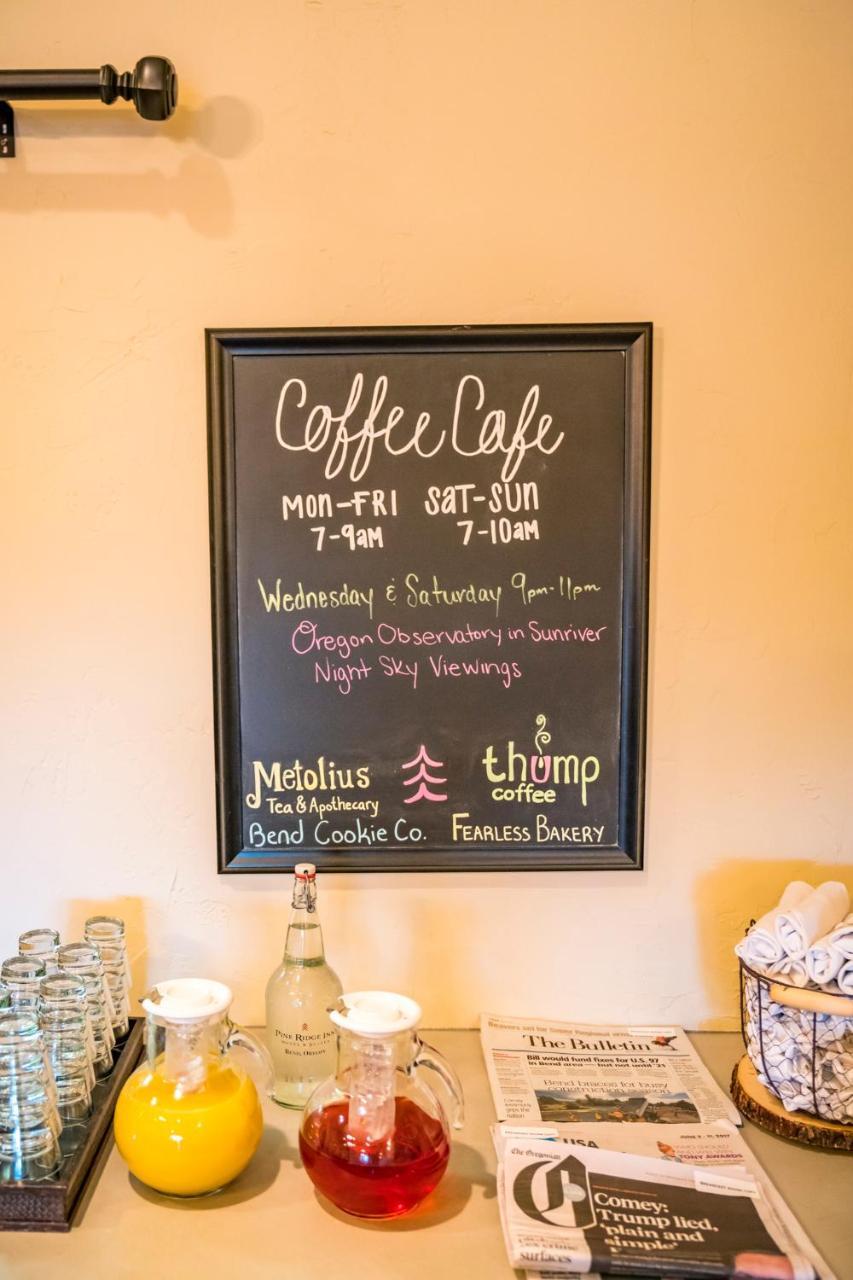 Coffee Cafe
MON-FRI SAT-SUN
7-9AM 7-10AM
Wednesday & Saturday 9pm-11pm
Oregon Observatory in Sunriver
Night Sky Viewings
Metolius
Tea & Apothecary
thump
coffee
Bend Cookie Co.
FEARLESS BAKERY
PINE RIDGE INN
BEND, OREGON
The Bulletin
Bill would fund fixes for U.S. 97
in Bend area — but not until '31
Bend braces for busy
construction season
USA
JUNE 9 - 11, 2017
TONY AWARDS
The Oregonian
Comey:
Trump lied,
'plain and
simple'
surfaces